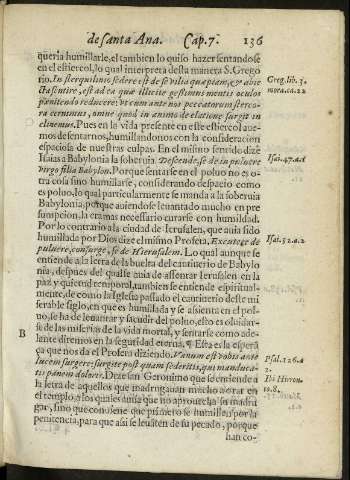 de santa Ana. Cap. 7. 136
queria humillarle, el tambien lo quiso hazer sentandose
en el estiercol, lo qual interpreta desta manera S. Grego
rio. In sterquilinio sedere est de se vilia quæpiam, & abie
cta sentire, est ad ea quæ illicite gessimus mentis oculos
pœnitendo reducere: vt cum ante nos peccatorum sterco-
ra cernimus, omne quod in animo de elatione surgit in
clinemus. Pues en la vida presente en este estiercol aue-
mos de sentarnos, humillandonos con la consideracion
espaciosa de nuestras culpas. En el mismo sentido dize
Isaias a Babylonia la soberuia Descende, sede in puluere
virgo filia Babylon. Porque sentarse en el poluo no es o-
tra cosa sino humillarse, considerando despacio como
es poluo, lo qual particularmente se manda a la soberuia
Babylonia, porque auiendose leuantado mucho en pre
sumpcion, la era mas necessario curarse con humildad.
Por lo contrario a la ciudad de Ierusalen, que auia sido
humillada por Dios dize el mismo Profeta, Excutere de
puluere, consurge, sede Hierusalem. Lo qual aunque se
entiende a la letra de la buelta del cautiuerio de Babylo
nia, despues del qual se auia de assentar Ierusalen en la
paz y quietud temporal, tambien se entiende espiritual-
mente, de como la Iglesia passado el cautiuerio deste mi
serable siglo, en que es humillada y se assienta en el pol-
uo, se ha de leuantar y sacudir del poluo, esto es oluidar-
se de las miserias de la vida mortal, y sentarse como ade-
lante diremos en la seguridad eterna. ¶ Esta es la espera
ça que nos da el Profeta diziendo. Vanum est vobis ante
lucem surgere: surgite postquam sederitis, qui manduca-
tis panem doloris. Dize san Geronimo que se entiende a
la letra de aquellos que madrugauan mucho a orar en
el templo, a los quales auisa que no aprouecha su madru
gar, sino que conuiene que primero se humillen por la
penitencia, para que assi se leuanten de su pecado, porque
han co-
Greg. lib. 3.
mora. ca. 22
Isai. 47. a. 1
Isai. 52. a. 2
B
Psal. 126. a
2.
Ibi Hieron.
to. 8.